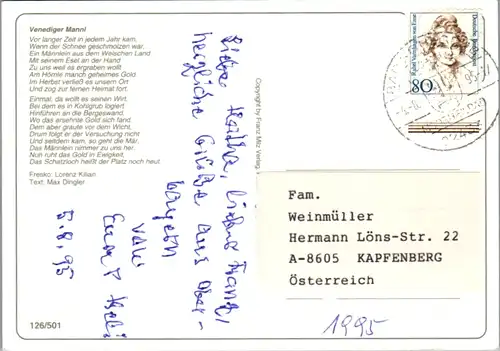 Venediger Manni
Vor langer Zeit in jedem Jahr kam,
Wenn der Schnee geschmolzen war,
Ein Männlein aus dem Welschen Land
Mit seinem Esel an der Hand
Zu uns weil es ergraben wollt
Am Hörnle manch geheimes Gold
Im Herbst verließ es unsern Ort
Und zog zur fernen Heimat fort
Einmal: da wollt es seinen Wirt.
Bei dem es in Kohlgrub logiert
Hinführen an die Bergeswand
Wo das ersehnte Gold sich fand.
Dem aber graute vor dem Wicht.
Drum folgt er der Versuchung nicht
Und seitdem kam, so geht die Mär,
Das Männlein nimmer zu uns her.
Noh ruht das Gold in Ewigkeit,
Den Schatzsucher heißt der Platz noch heut
Fresko: Lorenz Kilian
Text: Max Dingler
126/501
Liebe Heidha, lieber Franz,
herzliche Grüße aus Ober-
bayern
von
5.8.95
Copyright by Franz Milz Verlag
Rahel Varnhagen von Ense
Deutsche Bundespost
80
Fam.
Weinmüller
Hermann Löns-Str. 22
A-8605 KAPFENBERG
Österreich
1995